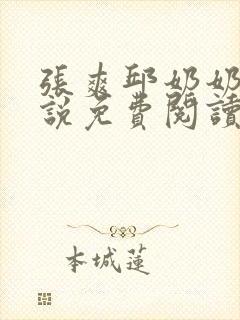 張爽邱奶奶
說免費閱讀
本城蓮